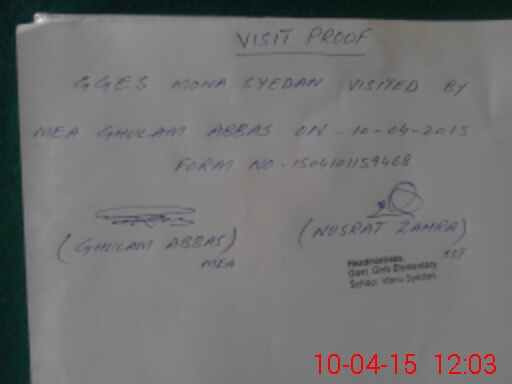 VISIT PROOF
GGES MONA SYEDAN VISITED BY
MEA GHULAM ABBAS ON - 10-04-2015.
FORM NO - 1504101159468
(GHULAM ABBAS)
MEA
(NUSRAT ZAHRA)
SST
Headmistress
Govt. Girls Elementary
School Mona Syedan
10-04-15 12:03